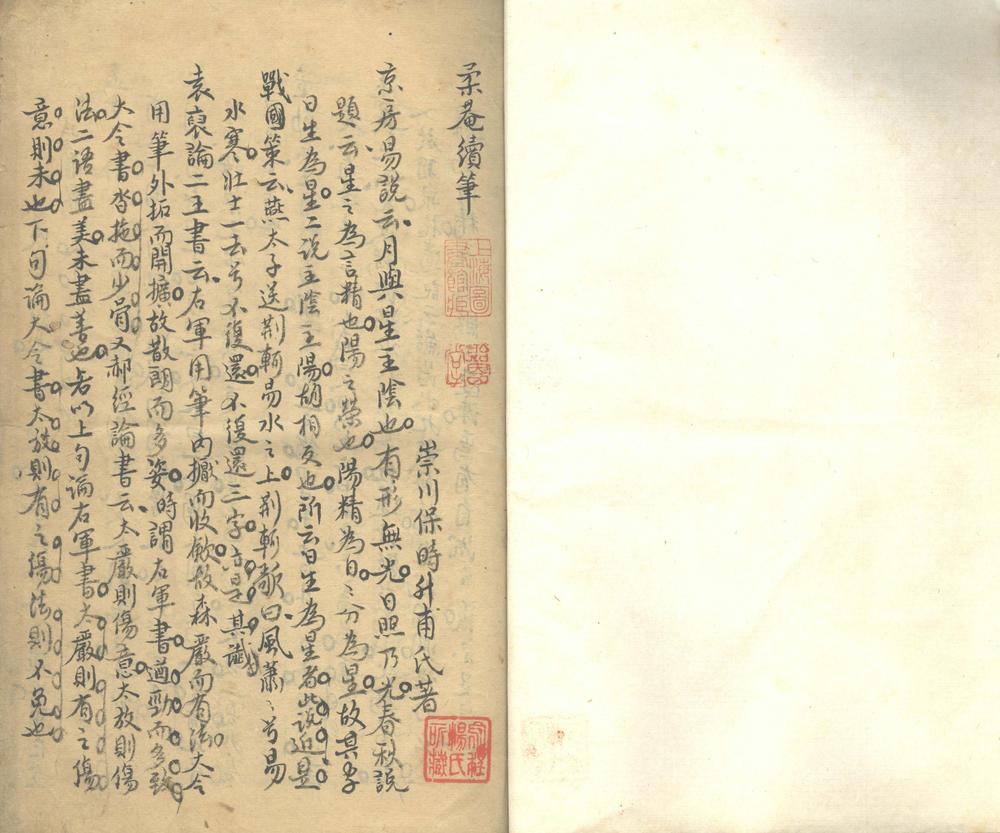 柔菴續筆
崇川保時升甫氏著
京房易說云月與星主陰也有形無光日照乃光春秋說
題云星之為言精也陽之榮也陽精為日〻分為星故其字
日生為星二說主陰主陽胡相反也所云日生為星者此說近是
戰國策云燕太子送荊軻易水之上荊軻歌曰風蕭〻兮易
水寒壯士一去兮不復還不復還三字亦是其讖
袁裒論二王書云右軍用筆內擫而收斂故森嚴而有法大令
用筆外拓而開擴故散朗而多姿時謂右軍書遒勁而多致
大令書沓拖而少骨又郝經論書云太嚴則傷意太放則傷
法二語盡美未盡善也若以上句論右軍書太嚴則有之傷
意則未也下句論大令書太放則有之傷法則不免也
上海圖
書館藏
楊氏
所藏